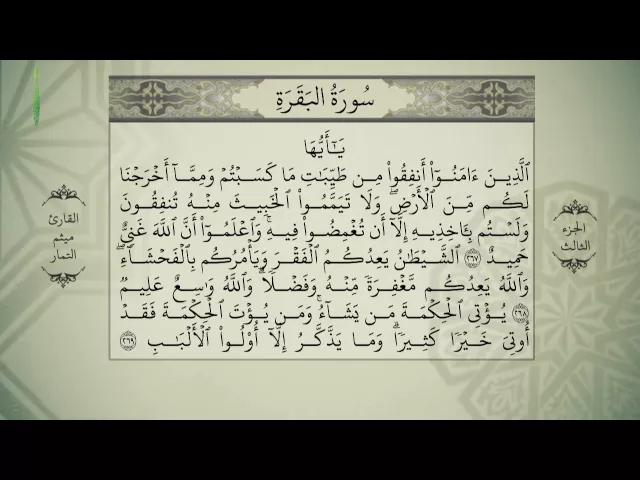 سُورَةُ البَقَرَةِ
يَـٰٓأَيُّهَا
ٱلَّذِينَ ءَامَنُوٓا۟ أَنفِقُوا۟ مِن طَيِّبَـٰتِ مَا كَسَبْتُمْ وَمِمَّآ أَخْرَجْنَا
لَكُم مِّنَ ٱلْأَرْضِ ۖ وَلَا تَيَمَّمُوا۟ ٱلْخَبِيثَ مِنْهُ تُنفِقُونَ
وَلَسْتُم بِـَٔاخِذِيهِ إِلَّآ أَن تُغْمِضُوا۟ فِيهِ ۚ وَٱعْلَمُوٓا۟ أَنَّ ٱللَّهَ غَنِىٌّ
حَمِيدٌ ٢٦٧ ٱلشَّيْطَـٰنُ يَعِدُكُمُ ٱلْفَقْرَ وَيَأْمُرُكُم بِٱلْفَحْشَآءِ ۖ
وَٱللَّهُ يَعِدُكُم مَّغْفِرَةً مِّنْهُ وَفَضْلًا ۗ وَٱللَّهُ وَٰسِعٌ عَلِيمٌ
٢٦٨ يُؤْتِى ٱلْحِكْمَةَ مَن يَشَآءُ ۚ وَمَن يُؤْتَ ٱلْحِكْمَةَ فَقَدْ
أُوتِىَ خَيْرًا كَثِيرًا ۗ وَمَا يَذَّكَّرُ إِلَّآ أُو۟لُوا۟ ٱلْأَلْبَـٰبِ ٢٦٩
الجزء
الثالث
القارئ
ميثم
التمار